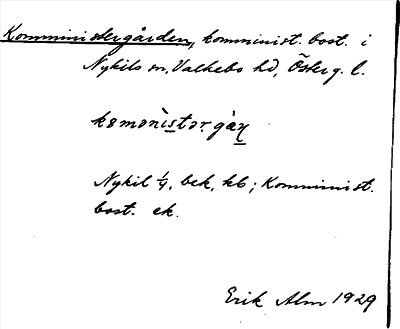 Komministergården, komminist. bost. i
Nykils sn, Valkebo hd, Österg. l.
Nykil 1/4, bek, kb; Komminist.
bost. ek.
Erik Alm 1929